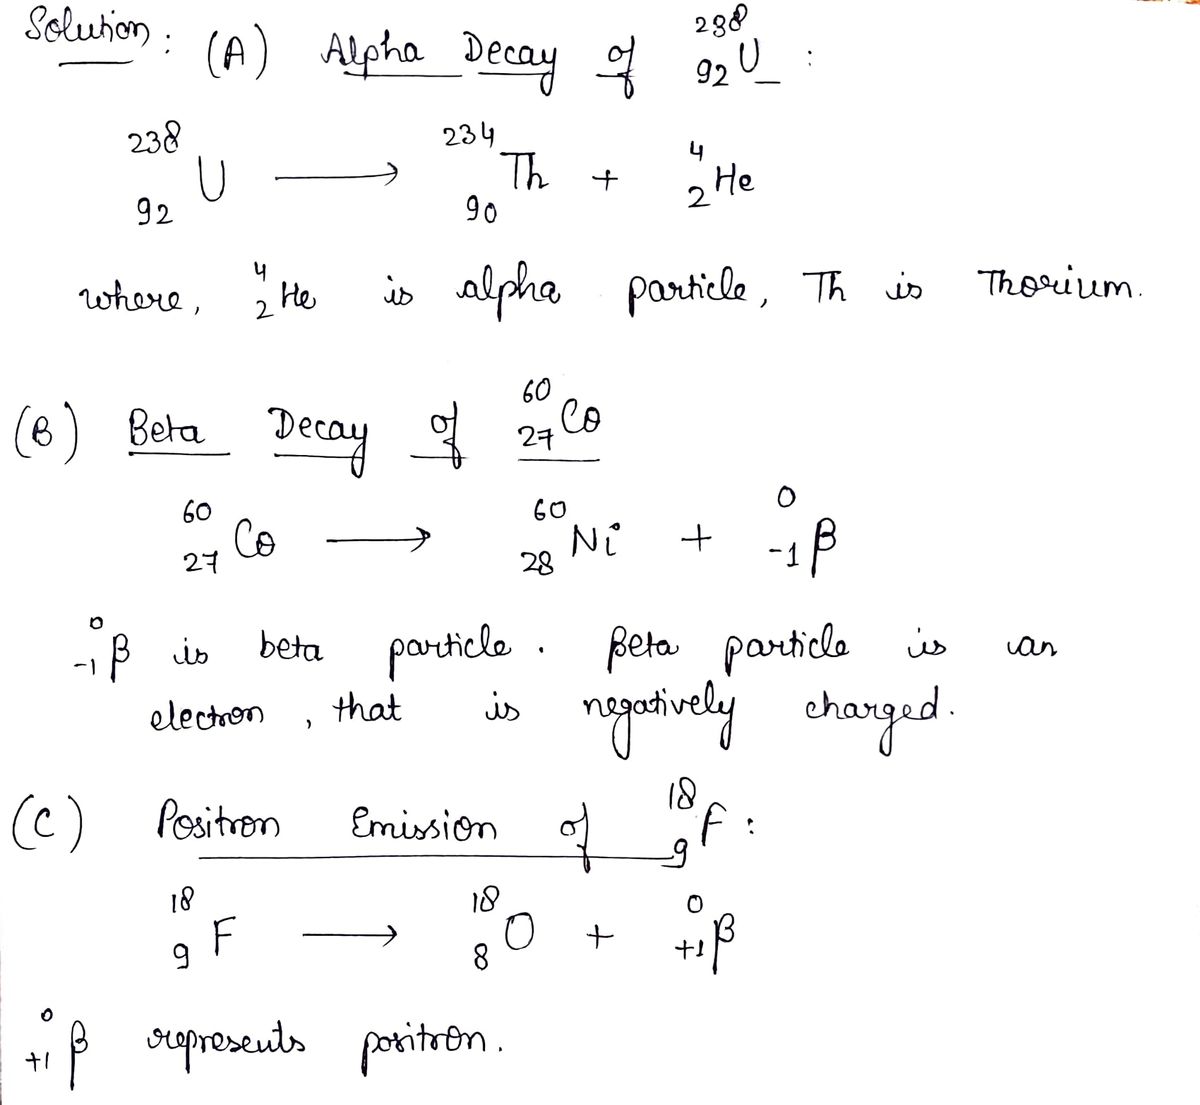 Solution : (A) Alpha Decay of ²³⁸₉₂U :
²³⁸₉₂U ⟶ ²³⁴₉₀Th + ⁴₂He
where, ⁴₂He is alpha particle, Th is Thorium.
(B) Beta Decay of ⁶⁰₂₇Co
⁶⁰₂₇Co ⟶ ⁶⁰₂₈Ni + ⁰₋₁β
⁰₋₁β is beta particle. Beta particle is an
electron, that is negatively charged.
(C) Positron Emission of ¹⁸₉F :
¹⁸₉F ⟶ ¹⁸₈O + ⁰₊₁β
⁰₊₁β represents positron.